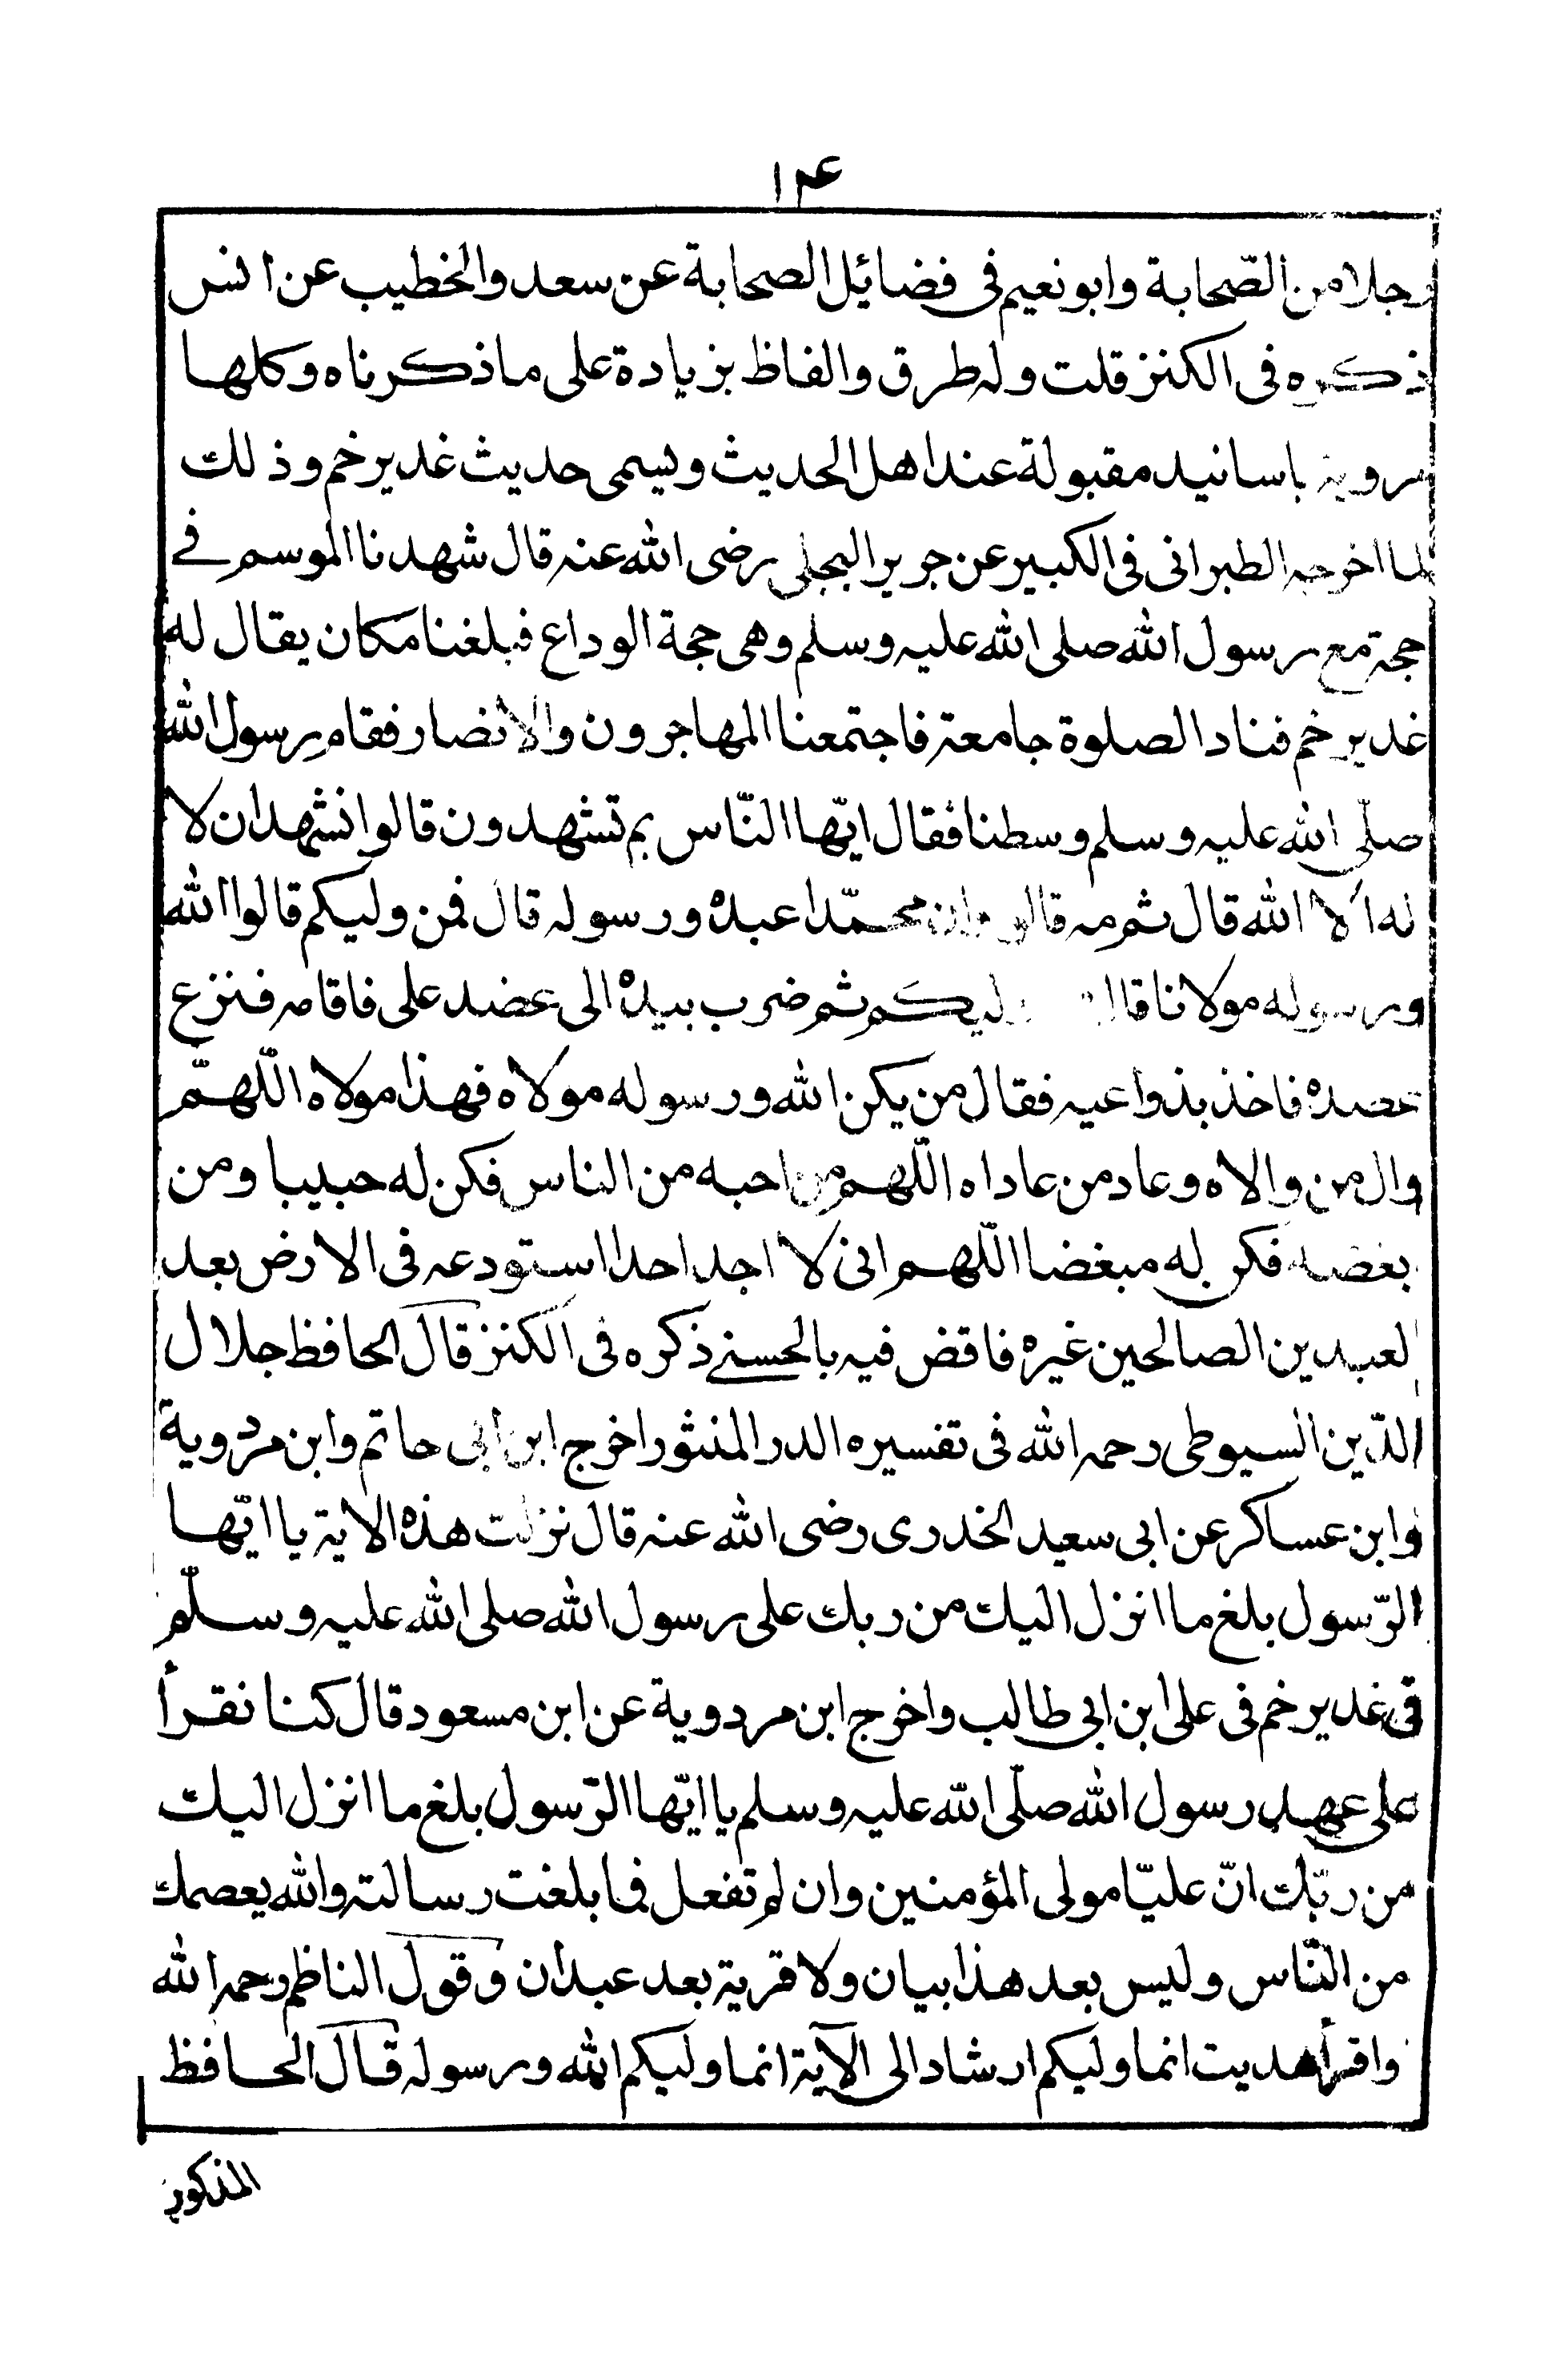 ١٢٤
رجلا من الصّحابة وابو نعيم فى فضائل الصحابة عن سعد والخطيب عن انس
ذكره فى الكنز قلت وله طرق والفاظ بزيادة على ما ذكرناه وكلها
مروية باسانيد مقبولة عند اهل الحديث ويسمى حديث غدير خم وذلك
لما اخرجه الطبرانى فى الكبير عن جرير البجلى رضى الله عنه قال شهدنا الموسم فى
حجة مع رسول الله صلى الله عليه وسلم وهى حجة الوداع فبلغنا مكان يقال له
غدير خم فناد الصلوة جامعة فاجتمعنا المهاجرون والانصار فقام رسول الله
صلّى الله عليه وسلم وسطنا فقال ايّها النّاس بم تشهدون قالوا نشهد ان لا
له الا الله قال ثم مه قالوا وان محمّدا عبده ورسوله قال فمن وليكم قالوا الله
ورسوله مولانا قال وليكم ثم ضرب بيده الى عضد على فاقامه فنزع
عضده فاخذ بذواعيه فقال من يكن الله ورسوله مولاه فهذا مولاه اللّهمّ
وال من والاه وعاد من عاداه اللّهم من احبه من الناس فكن له حبيبا ومن
بغضه فكن له مبغضا اللّهم انى لا اجد احدا استودعه فى الارض بعد
لعبدين الصالحين غيره فاقض فيه بالحسنى ذكره فى الكنز قال الحافظ جلال
الدّين السيوطى رحمه الله فى تفسيره الدر المنثور اخرج ابن ابى حاتم وابن مردوية
وابن عساكر عن ابى سعيد الخدرى رضى الله عنه قال نزلت هذه الاية يا ايّها
الرّسول بلغ ما انزل اليك من ربك على رسول الله صلى الله عليه وسلّم
فى غدير خم فى على ابن ابى طالب واخرج ابن مردوية عن ابن مسعود قال كنا نقرأ
على عهد رسول الله صلّى الله عليه وسلم يا ايّها الرّسول بلغ ما انزل اليك
من ربّك انّ عليّا مولى المؤمنين وان لم تفعل فما بلغت رسالته والله يعصمك
من النّاس وليس بعد هذا بيان ولا قرية بعد عبدان وقول الناظم رحمه الله
واقرأ هديت انما وليكم ارشاد الى الآية انما وليكم الله ورسوله قال الحافظ
المذكور